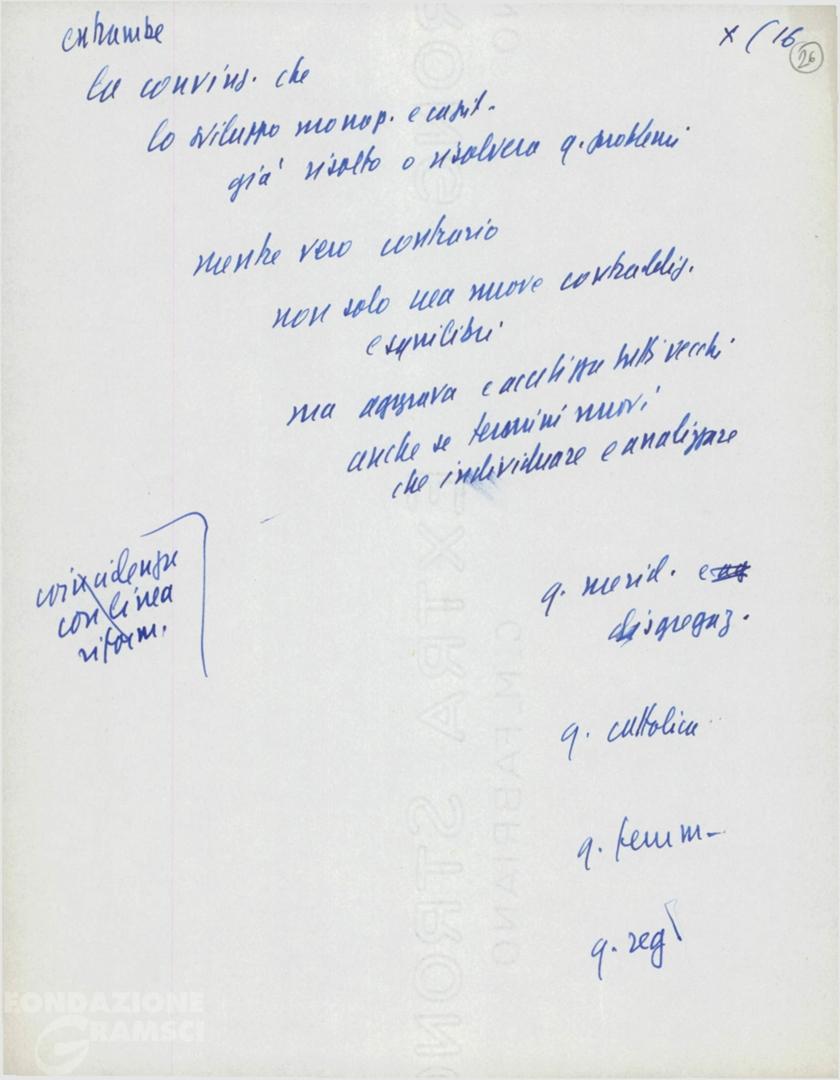 entrambe
x (16
26
la convinz. che
lo sviluppo monop. e capit.
già risolto o risolverà q. problemi
mentre vero contrario
non solo crea nuove contraddiz.
e squilibri
ma aggrava e acutizza tutti vecchi
anche se termini nuovi
che individuare e analizzare
coincidenza
con linea
riform.
q. merid. e
disgregaz.
q. cattolica
q. femm.
q. reg
EXTRA STRONG
C.M. FABRIANO
FONDAZIONE
GRAMSCI